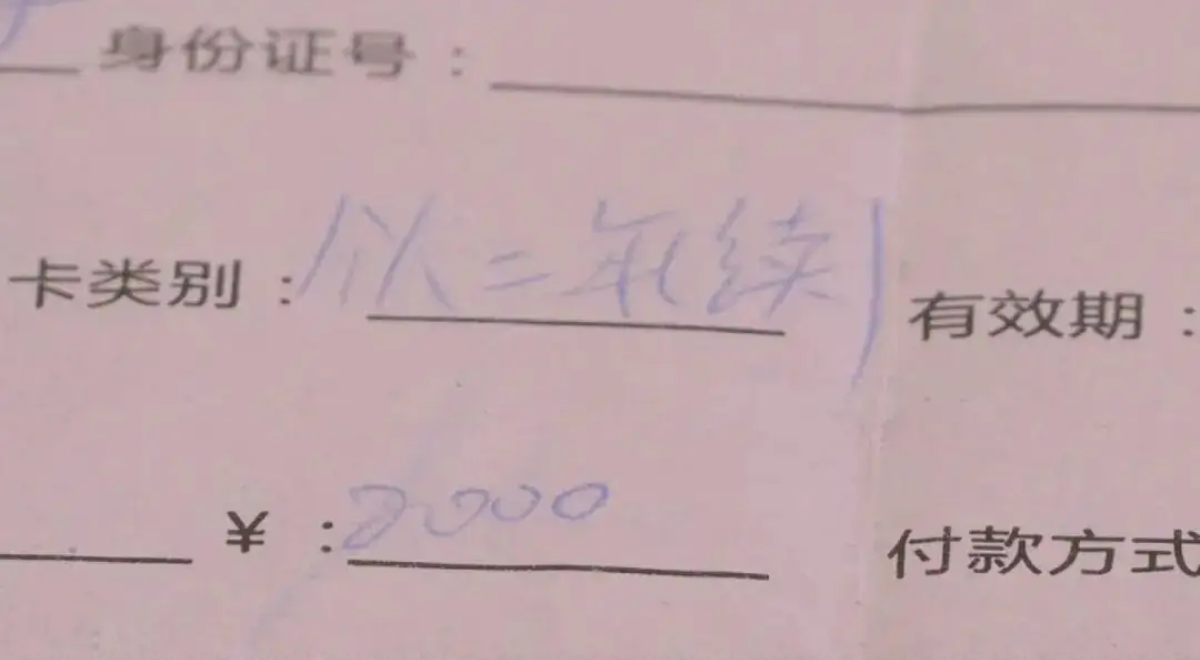 身份证号：
卡类别： 二年续 有效期：
¥：2000 付款方式